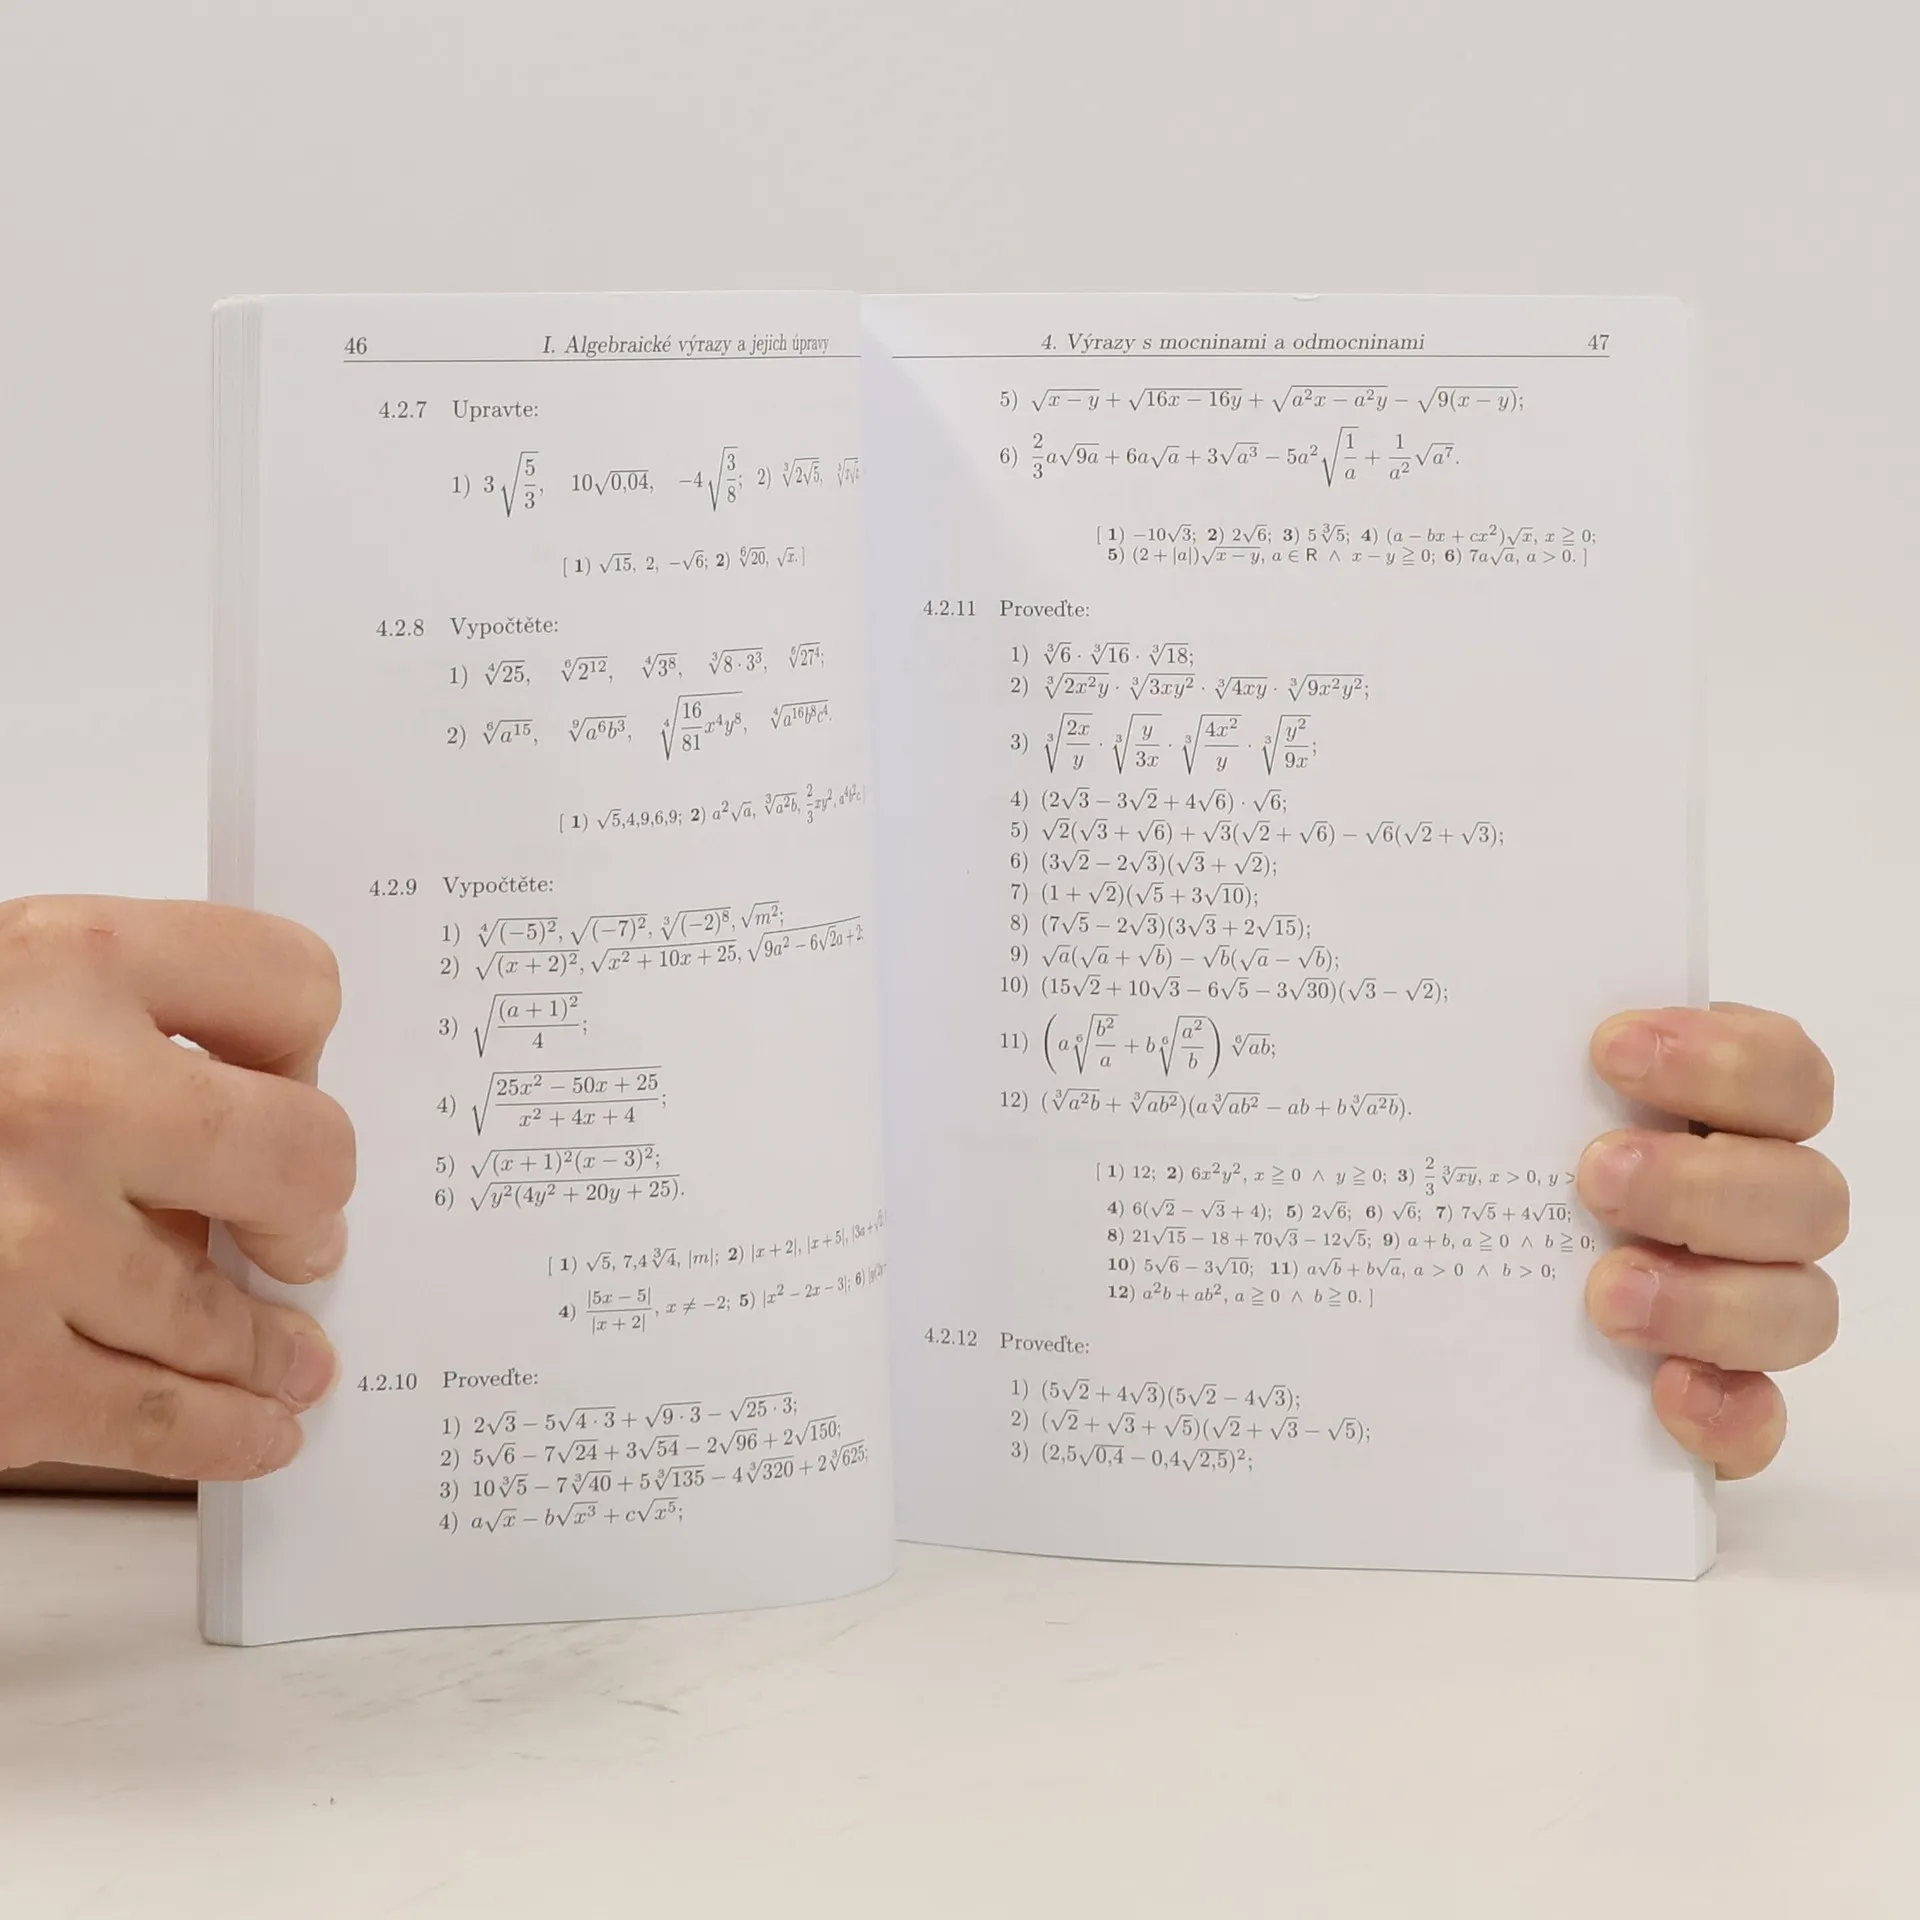 46 I. Algebraické výrazy a jejich úpravy
4.2.7 Upravte:
1) 3√(5/3), 10√0,04, −4√(3/8); 2) ∛(2√5),
[ 1) √15, 2, −√6; 2) ⁶√20, √x. ]
4.2.8 Vypočtěte:
1) ⁴√25, ⁶√2¹², ⁴√3⁸, ∛(8 · 3³), ⁶√27⁴;
2) ⁶√a¹⁵, ⁹√(a⁶b³), ⁴√((16/81)x⁴y⁸), ⁴√(a¹⁶b⁸c⁴).
[ 1) √5,4,9,6,9; 2) a²√a, ∛(a²b), (2/3)xy², a⁴b²c
4.2.9 Vypočtěte:
1) ⁴√((−5)²), √((−7)²), ∛((−2)⁸), √m²;
2) √((x + 2)²), √(x² + 10x + 25), √(9a² − 6√2a + 2
3) √((a + 1)²/4);
4) √((25x² − 50x + 25)/(x² + 4x + 4));
5) √((x + 1)²(x − 3)²);
6) √(y²(4y² + 20y + 25)).
[ 1) √5, 7,4∛4, |m|; 2) |x + 2|, |x + 5|,
4) |5x − 5|/|x + 2|, x ≠ −2; 5) |x² − 2x − 3|; 6)
4.2.10 Proveďte:
1) 2√3 − 5√(4 · 3) + √(9 · 3) − √(25 · 3);
2) 5√6 − 7√24 + 3√54 − 2√96 + 2√150;
3) 10∛5 − 7∛40 + 5∛135 − 4∛320 + 2∛625;
4) a√x − b√x³ + c√x⁵;
4. Výrazy s mocninami a odmocninami 47
5) √(x − y) + √(16x − 16y) + √(a²x − a²y) − √(9(x − y));
6) (2/3)a√(9a) + 6a√a + 3√a³ − 5a²√(1/a) + (1/a²)√a⁷.
[ 1) −10√3; 2) 2√6; 3) 5∛5; 4) (a − bx + cx²)√x, x ≧ 0;
5) (2 + |a|)√(x − y), a ∈ R ∧ x − y ≧ 0; 6) 7a√a, a > 0. ]
4.2.11 Proveďte:
1) ∛6 · ∛16 · ∛18;
2) ∛(2x²y) · ∛(3xy²) · ∛(4xy) · ∛(9x²y²);
3) ∛(2x/y) · ∛(y/3x) · ∛(4x²/y) · ∛(y²/9x);
4) (2√3 − 3√2 + 4√6) · √6;
5) √2(√3 + √6) + √3(√2 + √6) − √6(√2 + √3);
6) (3√2 − 2√3)(√3 + √2);
7) (1 + √2)(√5 + 3√10);
8) (7√5 − 2√3)(3√3 + 2√15);
9) √a(√a + √b) − √b(√a − √b);
10) (15√2 + 10√3 − 6√5 − 3√30)(√3 − √2);
11) (a ⁶√(b²/a) + b ⁶√(a²/b)) ⁶√(ab);
12) (∛(a²b) + ∛(ab²))(a∛(ab²) − ab + b∛(a²b)).
[ 1) 12; 2) 6x²y², x ≧ 0 ∧ y ≧ 0; 3) (2/3)∛(xy), x > 0, y >
4) 6(√2 − √3 + 4); 5) 2√6; 6) √6; 7) 7√5 + 4√10;
8) 21√15 − 18 + 70√3 − 12√5; 9) a + b, a ≧ 0 ∧ b ≧ 0;
10) 5√6 − 3√10; 11) a√b + b√a, a > 0 ∧ b > 0;
12) a²b + ab², a ≧ 0 ∧ b ≧ 0. ]
4.2.12 Proveďte:
1) (5√2 + 4√3)(5√2 − 4√3);
2) (√2 + √3 + √5)(√2 + √3 − √5);
3) (2,5√0,4 − 0,4√2,5)²;